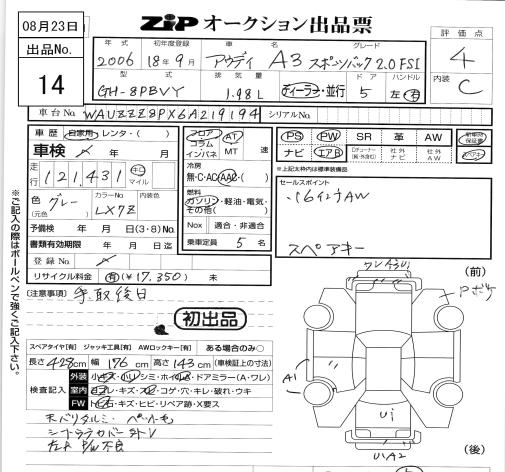 08月23日
ZIP オークション出品票
評価点
4
内装
C
出品No.
14
年式 初年度登録 車名 グレード
2006 18年9月 アウディ A3 スポーツバック 2.0FSI
型式 排気量 ドア ハンドル
GH-8PBVY 1.98L ディーラー・並行 5 左・右
車台No. WAUZZZ8PX6A219194 シリアルNo.
車歴 自家用・レンタ・( )
車検 年 月
走行 121,431 キロ マイル
色 グレー カラーNo. LX7Z 内装色
(元色)
予備検 年 月 日(3・8)No.
書類有効期限 年 月 日迄
登録No.
リサイクル料金 有 ¥17,350 未
フロア コラム インパネ AT MT 速
冷房
無・C・AC・AAC・( )
燃料
ガソリン・軽油・電気・その他( )
Nox 適合・非適合
乗車定員 5 名
PS PW SR 革 AW
ナビ エアB 社外ナビ 社外AW
新車時保証書
スペアキー
※上記太枠内は標準装備品
セールスポイント
・16インチAW
スペアキー
※ご記入の際はボールペンで強くご記入下さい。
(注意事項)
初出品
スペアタイヤ[有] ジャッキ工具[有] AWロックキー[有] ある場合のみ○
長さ 428cm 幅 176cm 高さ 143cm (車検証上の寸法)
検査記入
外装 小キズ・凹・シミ・ホイル・ドアミラー(A・ワレ)
室内 ヨゴレ・キズ・スレ・コゲ・穴・キレ・破れ・ウキ
FW トビ石・キズ・ヒビ・リペア跡・X要ス
左A P/W不良
(前)
A1
U1
U1A2
(後)